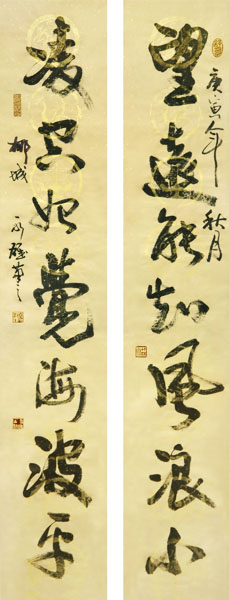 望远能知风浪小
庚寅年 秋月
凌空始觉海波平
柳城